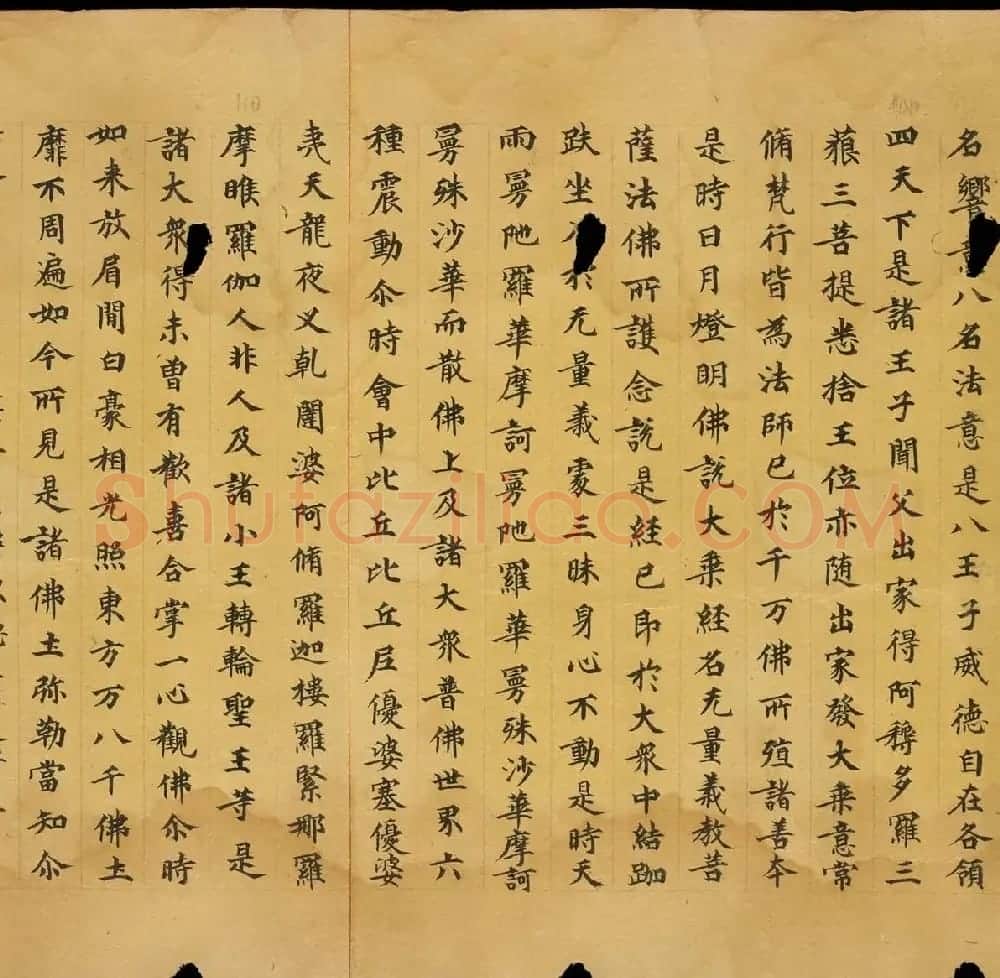 名響意八名法意是八王子威德自在各領
四天下是諸王子聞父出家得阿耨多羅三
藐三菩提悉捨王位亦随出家發大乗意常
脩梵行皆為法師已於千万佛所殖諸善夲
是時日月燈明佛說大乗経名无量義教菩
薩法佛所護念說是経已即於大衆中結跏
趺坐於无量義處三昧身心不動是時天
雨曼陁羅華摩訶曼陁羅華曼殊沙華摩訶
曼殊沙華而散佛上及諸大衆普佛世界六
種震動尒時會中比丘比丘尼優婆塞優婆
夷天龍夜叉乹闥婆阿脩羅迦樓羅緊那羅
摩睺羅伽人非人及諸小王轉輪聖王等是
諸大衆得未曽有歡喜合掌一心觀佛尒時
如来放眉間白豪相光照東方万八千佛土
靡不周遍如今所見是諸佛土弥勒當知尒
Shufaziliao.COM